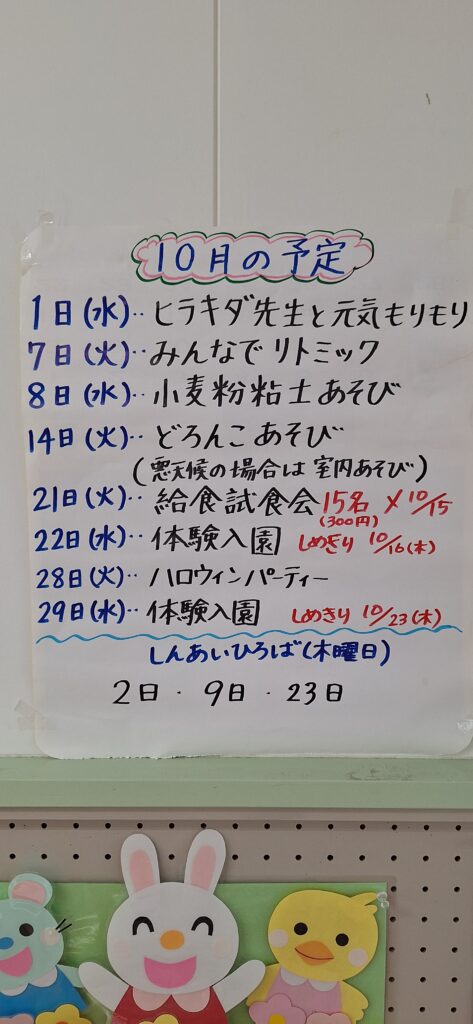 10月の予定
1日(水)‥ヒラキダ先生と元気もりもり
7日(火)‥みんなでリトミック
8日(水)‥小麦粉粘土あそび
14日(火)‥どろんこあそび
(悪天候の場合は室内あそび)
21日(火)‥給食試食会 15名 〆10/15
(300円)
22日(水)‥体験入園 しめきり 10/16(木)
28日(火)‥ハロウィンパーティー
29日(水)‥体験入園 しめきり 10/23(木)
しんあいひろば(木曜日)
2日・9日・23日